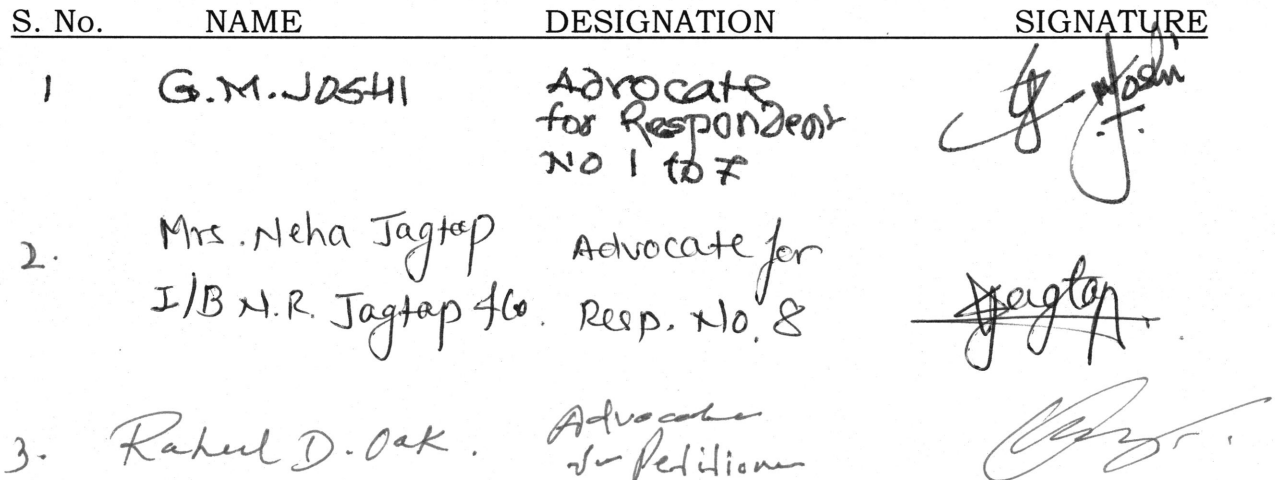 S. No. NAME DESIGNATION SIGNATURE
1 G.M. JOSHI Advocate
for Respondent
No 1 to 7
G. M Joshi
2. Mrs. Neha Jagtap Advocate for
I/B N.R. Jagtap & Co. Resp. No. 8
Jagtap
3. Rahul D. Oak. Advocate
for Petitioner